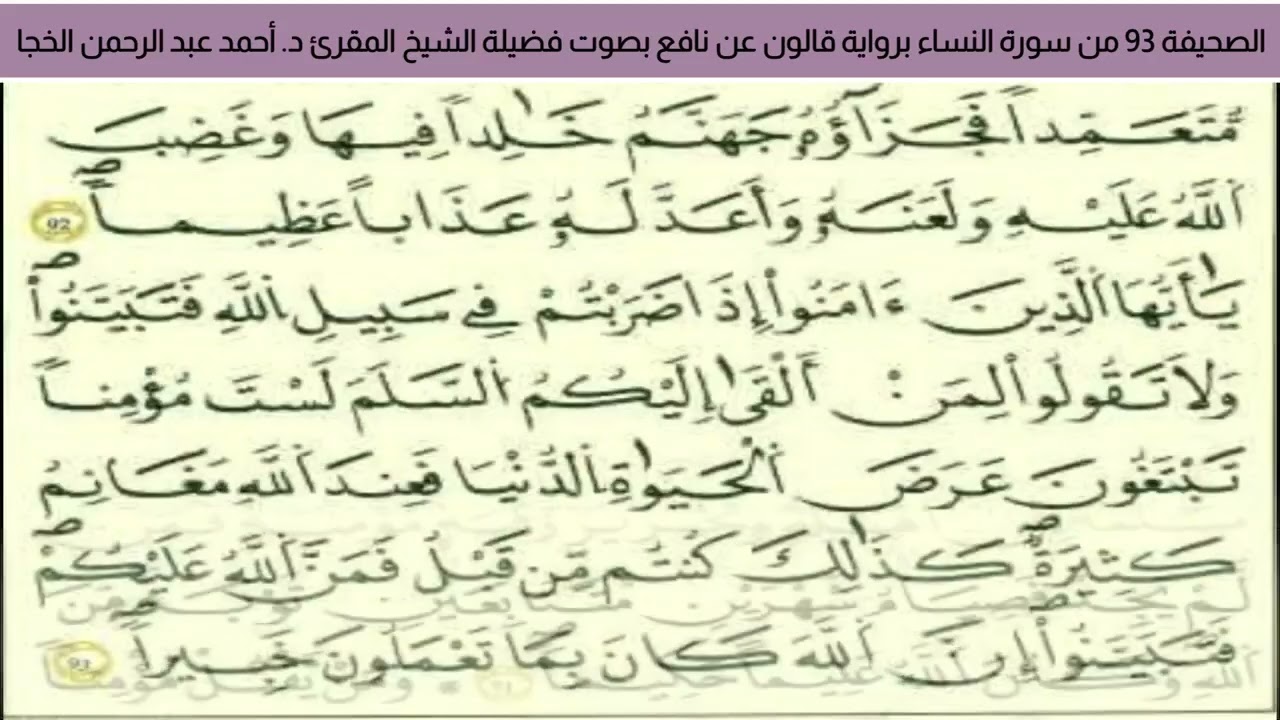 الصحيفة 93 من سورة النساء برواية قالون عن نافع بصوت فضيلة الشيخ المقرئ د. أحمد عبد الرحمن الخجا
مُّتَعَمِّداً فَجَزَآؤُهُۥ جَهَنَّمُ خَٰلِداً فِيهَا وَغَضِبَ
اَ۬للَّهُ عَلَيْهِ وَلَعَنَهُۥ وَأَعَدَّ لَهُۥ عَذَاباً عَظِيماًۖ 92
يَٰأَيُّهَا اَ۬لذِينَ ءَامَنُوٓاْ إِذَا ضَرَبْتُمْ فِے سَبِيلِ اِ۬للَّهِ فَتَبَيَّنُواْ
وَلَا تَقُولُواْ لِمَنْ أَلْقَىٰ إِلَيْكُمُ اُ۬لسَّلَمَ لَسْتَ مُؤْمِناً
تَبْتَغُونَ عَرَضَ اَ۬لْحَيَوٰةِ اِ۬لدُّنْيَا فَعِندَ اَ۬للَّهِ مَغَانِمُ
كَثِيرَةٌۖ كَذَٰلِكَ كُنتُم مِّن قَبْلُ فَمَنَّ اَ۬للَّهُ عَلَيْكُمْ
فَتَبَيَّنُوٓاْۖ إِنَّ اَ۬للَّهَ كَانَ بِمَا تَعْمَلُونَ خَبِيراًۖ 93